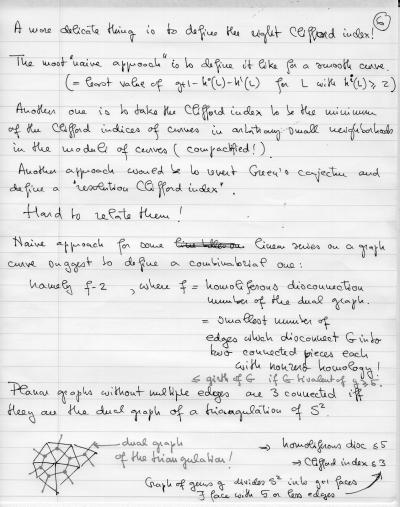 6
A more delicate thing is to define the right Clifford index!
The most "naive approach" is to define it like for a smooth curve.
(= least value of g+1-h⁰(L)-h¹(L) for L with hⁱ(L) ≥ 2)
Another one is to take the Clifford index to be the minimum
of the Clifford indices of curves in arbitrary small neighborhoods
in the moduli of curves (compactified!).
Another approach would be to revert Green's conjecture and
define a "resolution Clifford index".
Hard to relate them!
Naive approach for some linear series on a graph
curve suggest to define a combinatorial one:
namely f-2, where f = homoliferous disconnection
number of the dual graph.
= smallest number of
edges which disconnect G into
two connected pieces each
with nonzero homology!
≤ girth of G if G trivalent of g ≥ 5.
Planar graphs without multiple edges are 3 connected iff
they are the dual graph of a triangulation of S².
dual graph
of the triangulation!
⇒ homoliferous disc ≤ 5
⇒ Clifford index ≤ 3
Graph of genus g divides S² into g+1 faces
∃ face with 5 or less edges